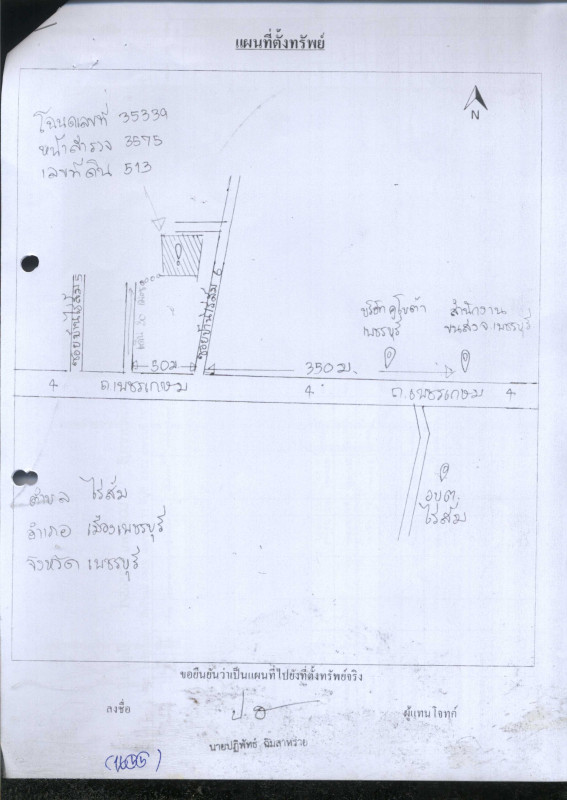 แผนที่ตั้งทรัพย์
N
โฉนดเลขที่ 35339
หน้าสำรวจ 3575
เลขที่ดิน 513
ซอยบ้านไร่ส้ม 5
ซอยบ้านไร่ส้ม 6
บริษัท โตโยต้า
เพชรบุรี
สำนักงาน
ขนส่ง จ.เพชรบุรี
50ม
350 ม.
4 ถ.เพชรเกษม 4 ถ.เพชรเกษม 4
อบต.
ไร่ส้ม
ตำบล ไร่ส้ม
อำเภอ เมืองเพชรบุรี
จังหวัด เพชรบุรี
ขอยืนยันว่าเป็นแผนที่ไปยังที่ตั้งทรัพย์จริง
ลงชื่อ ผู้แทนโจทก์
นายปฏิพัทธ์ ฉิมสาหร่าย